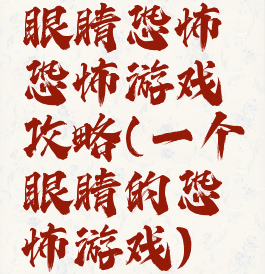 眼睛恐怖
恐怖游戏
攻略(一个
眼睛的恐
怖游戏)